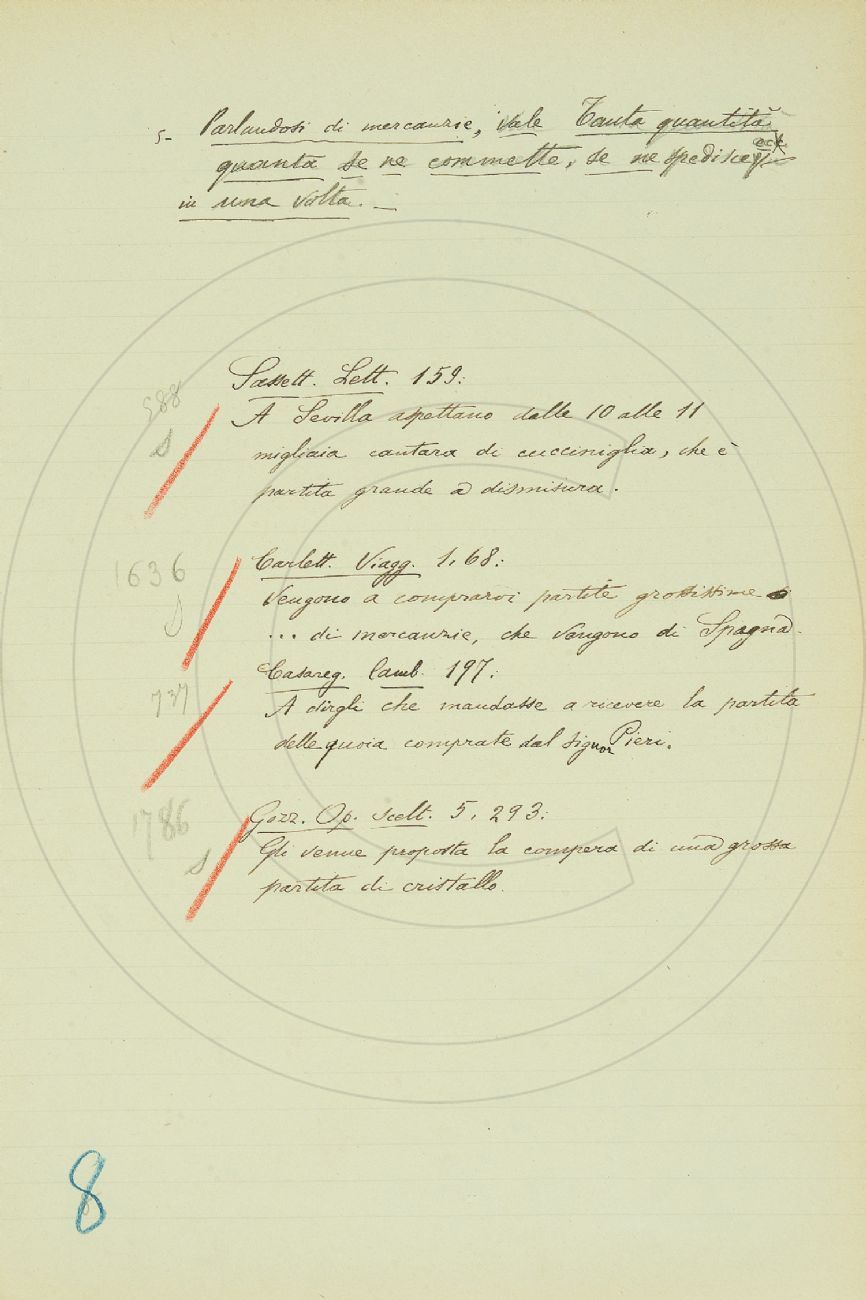 5- Parlandosi di mercanzie, vale Tanta quantità
quanta se ne commette, se ne spedisce, ecc.
in una volta. _
588
Sassett. Lett. 159:
A Sevilla aspettano dalle 10 alle 11
migliaia cantara di cucciniglia, che è
partita grande a dismisura.
1636
Carlett. Viagg. 1, 68:
Vengono a comprarvi partite grossissime
... di mercanzie, che vengono di Spagna.
737
Casareg. Camb. 197:
A dirgli che mandasse a ricevere la partita
delle quoia comprate dal signor Pieri.
1786
Gozz. Op. scelt. 5, 293:
Gli venne proposta la compera di una grossa
partita di cristallo.
8